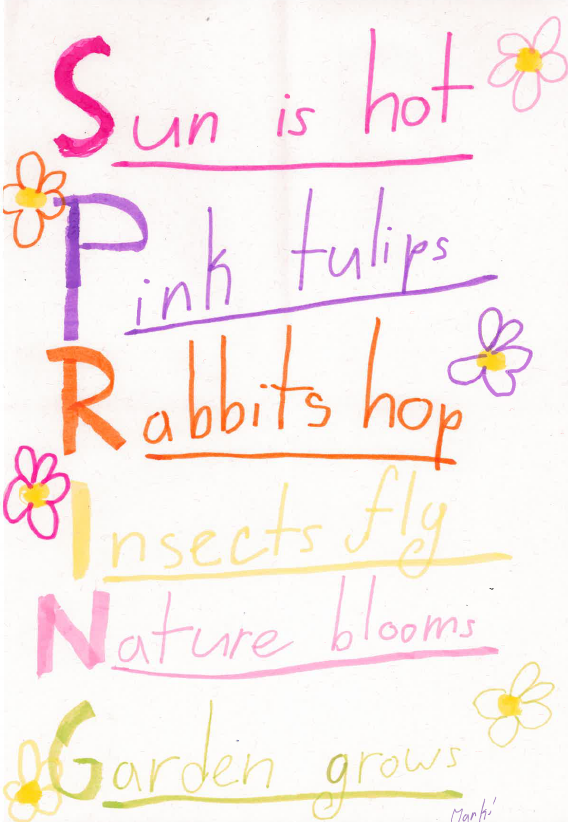 Sun is hot
Pink tulips
Rabbits hop
Insects fly
Nature blooms
Garden grows